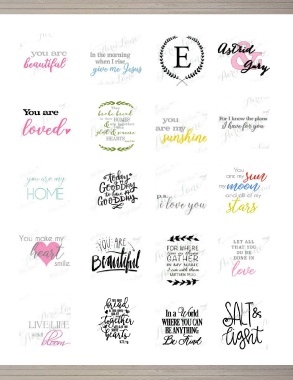 you are
beautiful
In the morning
when I rise
give me Jesus
E
Astrid
&
Gary
You are
loved
They
broke bread
in their
HOMES
and ate
together with
glad & sincere
HEARTS
you
are my
sunshine
For I know the plans
i have for you
you are my
HOME
Today
is a
GOOD DAY
to have a
GOOD DAY
p.s.
i love you
You are my sun
my moon
and all of my
stars
You make my
heart
smile
YOU ARE
Beautiful
FOR WHERE
two or three
GATHER
IN MY NAME
I am with them
LET ALL
THAT YOU
DO BE
DONE IN
love
LIVE LIFE
bloom
bread
together
hearts
In a World
WHERE YOU CAN
BE ANYTHING
Be Kind
SALT
&
light